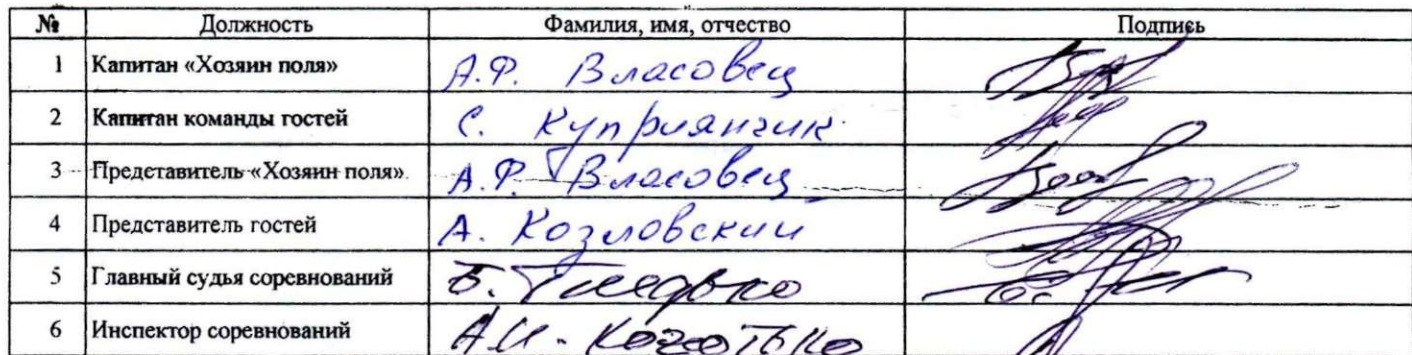 № Должность Фамилия, имя, отчество Подпись
1 Капитан «Хозяин поля» А.Ф. Власовец
2 Капитан команды гостей С. Куприянчик
3 Представитель «Хозяин поля» А.Ф. Власовец
4 Представитель гостей А. Козловский
5 Главный судья соревнований Б.
6 Инспектор соревнований А.И.